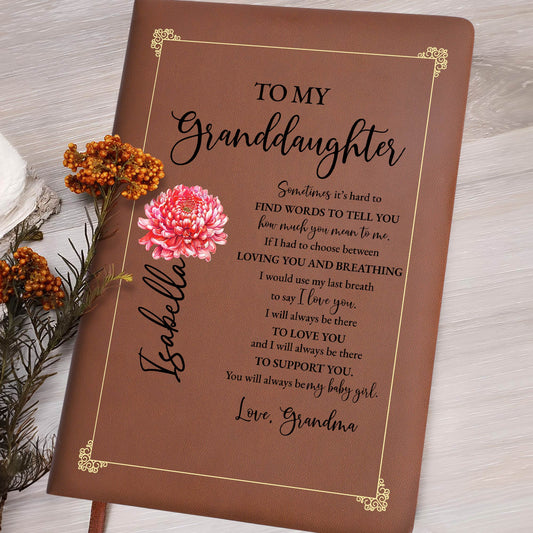 TO MY
Granddaughter
Sometimes it's hard to
FIND WORDS TO TELL YOU
how much you mean to me.
If I had to choose between
LOVING YOU AND BREATHING
I would use my last breath
to say I love you.
I will always be there
TO LOVE YOU
and I will always be there
TO SUPPORT YOU.
You will always be my baby girl.
Love, Grandma
Isabella